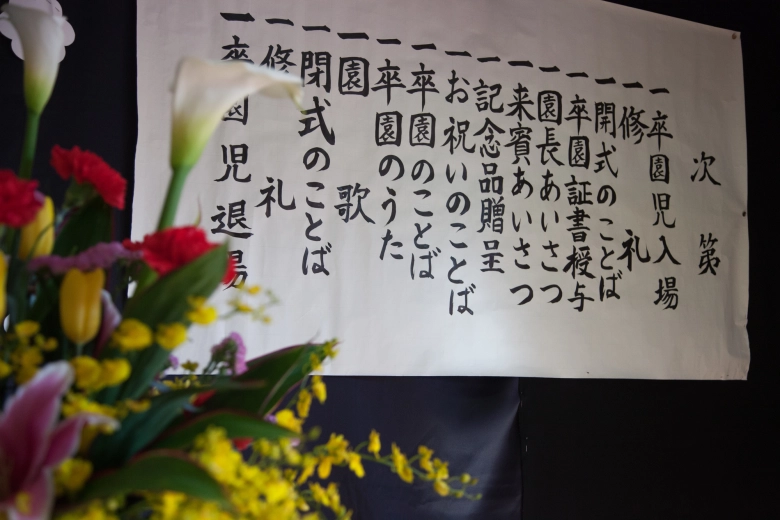 次第
一 卒園児入場
一 修礼
一 開式のことば
一 卒園証書授与
一 園長あいさつ
一 来賓あいさつ
一 記念品贈呈
一 お祝いのことば
一 卒園のことば
一 卒園のうた
一 園歌
一 閉式のことば
一 修礼
一 卒園児退場